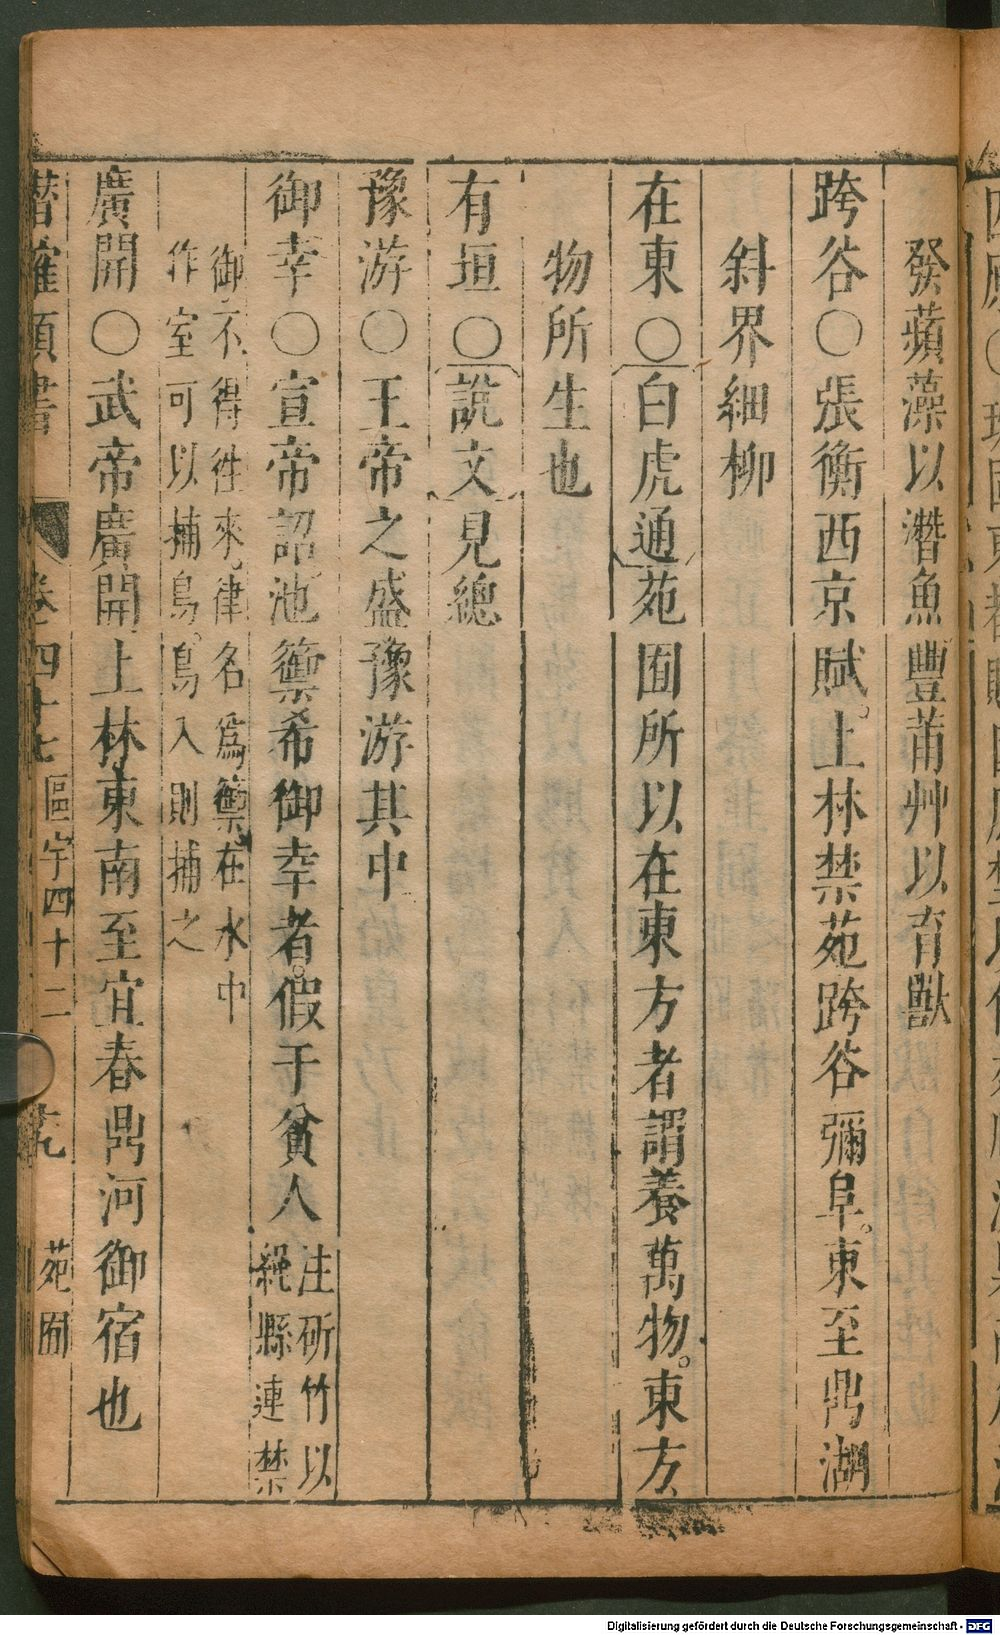 發蘋藻以潛魚豐莆艸以育獸
跨谷〇張衡西京賦。上林禁苑跨谷彌阜。東至鼎湖
斜界細柳
在東〇白虎通苑囿所以在東方者謂養萬物。東方
物所生也
有垣〇說文見總
豫游〇王帝之盛豫游其中
御幸〇宣帝詔池籞希御幸者。假于貧人
注斫竹以
繩縣連禁
御不得徃來律名爲籞在水中
作室可以捕鳥。鳥入則捕之
廣開〇武帝廣開上林東南至宜春鼎河御宿也
潛確類書
卷四十七
區宇四十二
苑囿
Digitalisierung gefördert durch die Deutsche Forschungsgemeinschaft - DFG